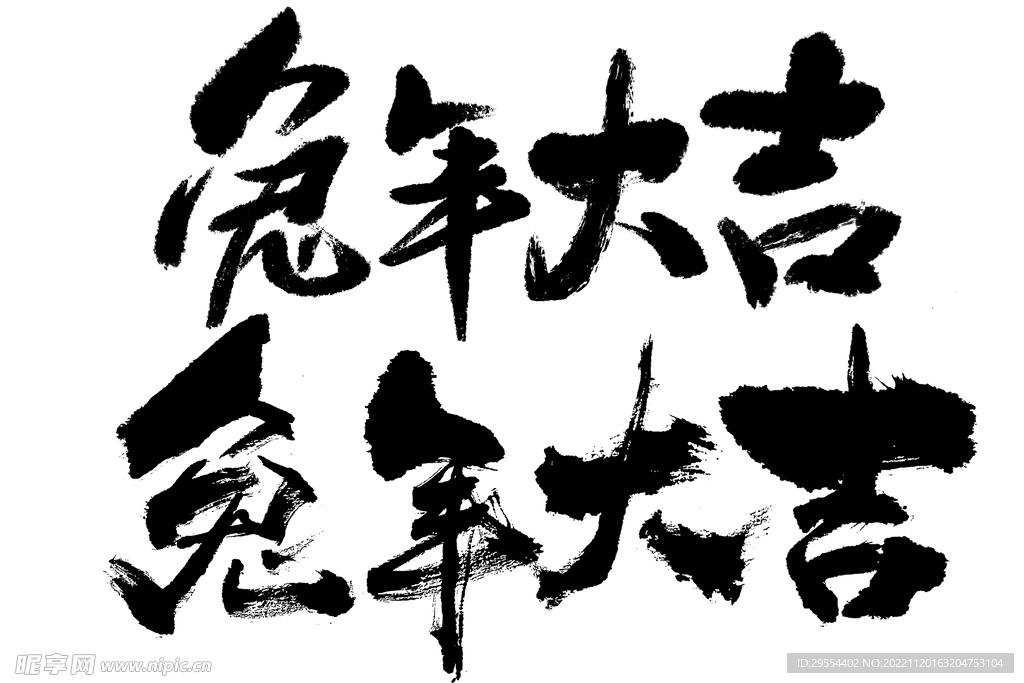 兔年大吉
兔年大吉
昵享网 www.nipic.cn
ID:29554402 NO:20221120163204753104